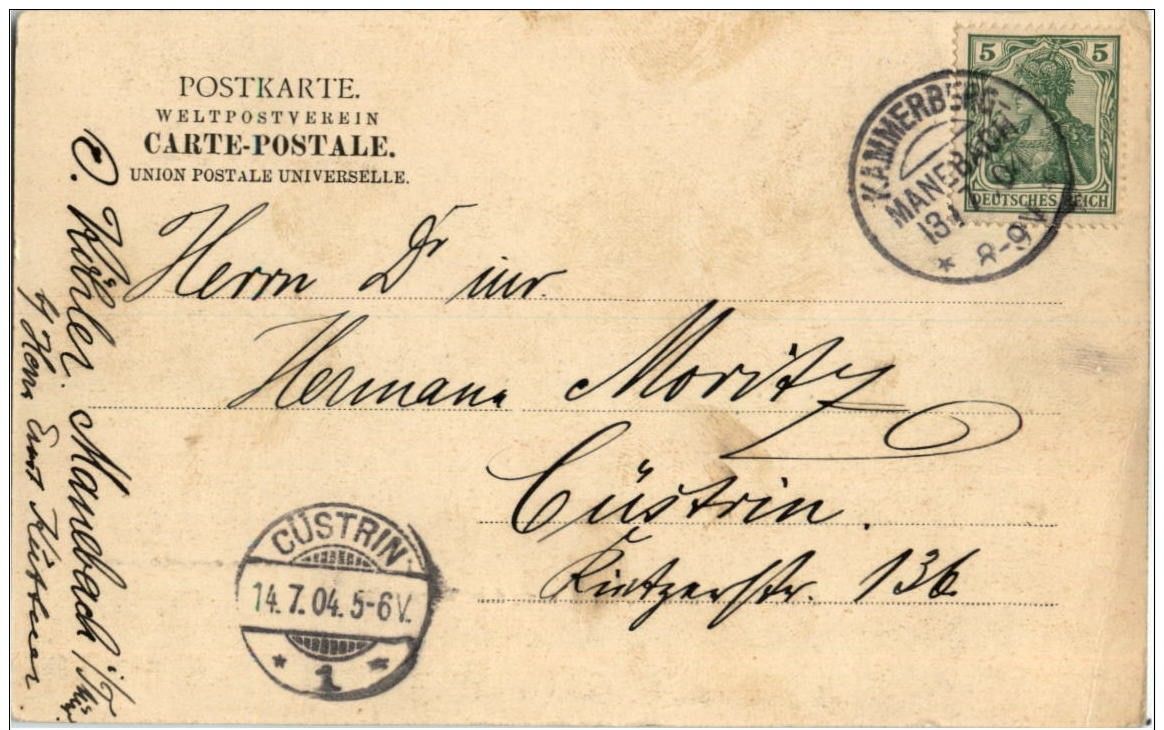 POSTKARTE.
WELTPOSTVEREIN
CARTE-POSTALE.
UNION POSTALE UNIVERSELLE.
5 5
DEUTSCHES REICH
KAMMERBERG-
MANEBACH
13.7.04
* 8-9V
Herrn Dr jur.
Hermann Moritz
Cüstrin.
Kietzerstr. 136
CÜSTRIN
14.7.04. 5-6V.
* 1 *
O. Köhler. Manebach i/
b/ Herrn Ernst Küttner